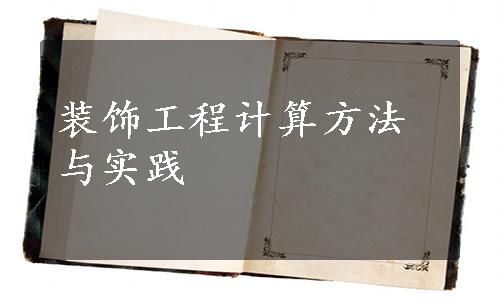 装饰工程计算方法
与实践